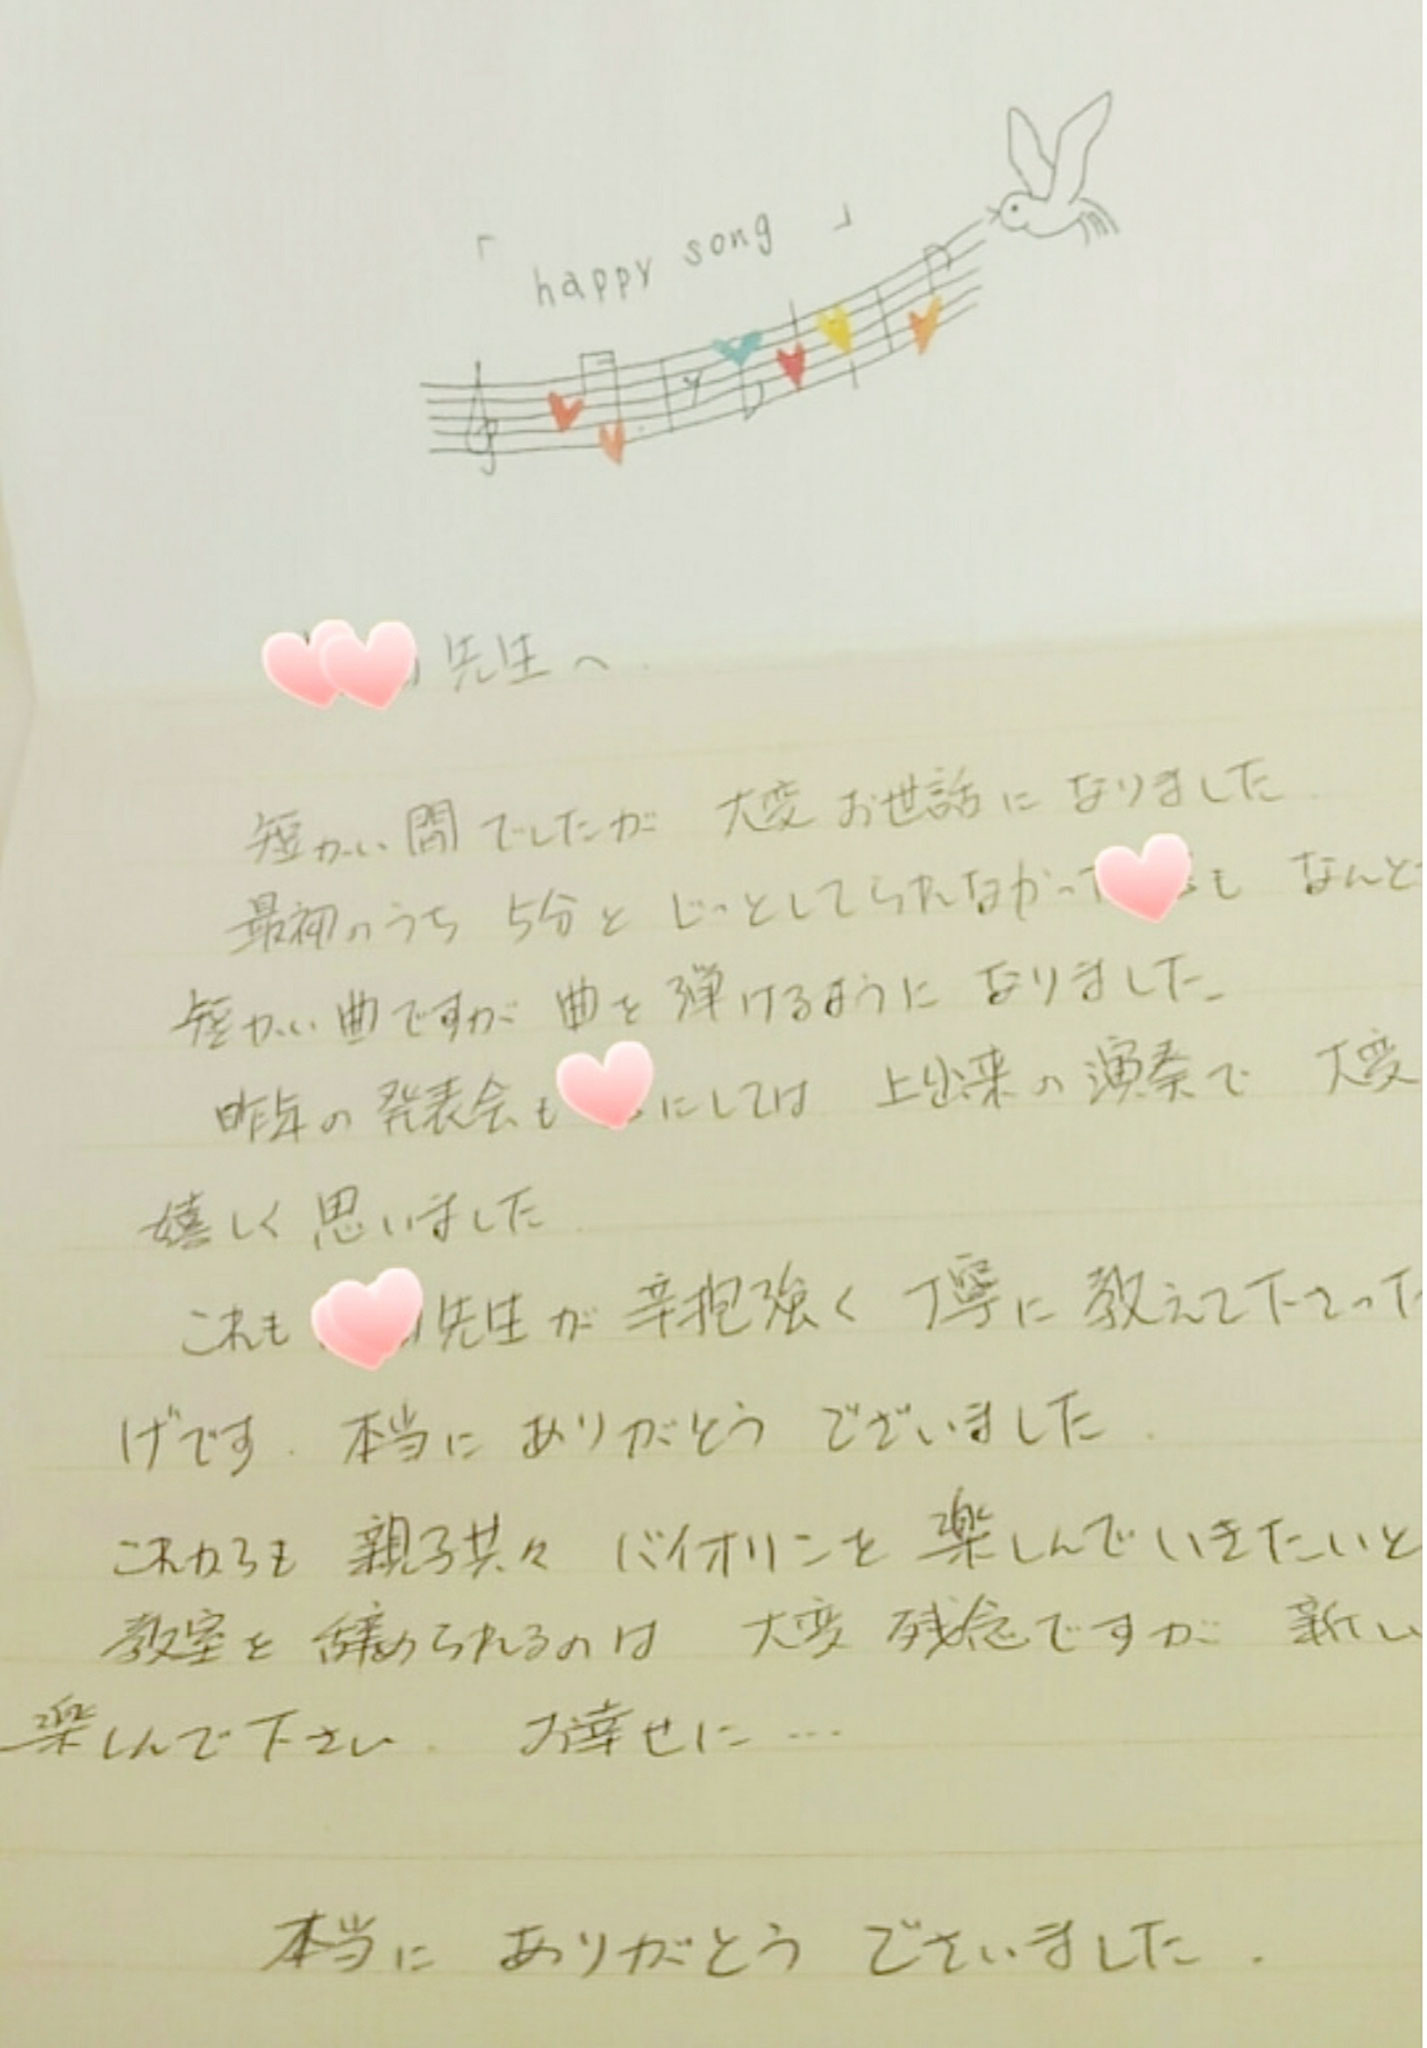 「happy song」
先生へ
短かい間でしたが 大変お世話になりました
最初のうち 5分と じっとしてられなかった も なんと
短かい曲ですが 曲を弾けるように なりました
昨年の発表会も にしては 上出来の演奏で 大変
嬉しく思いました
これも 先生が 辛抱強く 丁寧に 教えて下さった
げです. 本当に ありがとう ございました.
これからも 親子共々 バイオリンを 楽しんでいきたいと
教室を 辞められるのは 大変 残念ですが 新し
楽しんで下さい. お幸せに…
本当に ありがとう ございました.